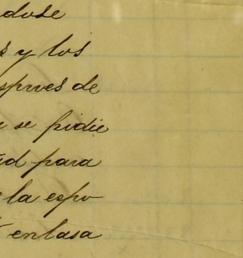 dose
s y los
espues de
se pidie
d para
la espo
enlasa